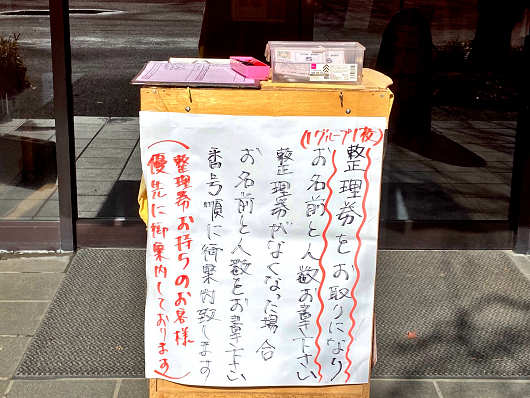 (1グループ1枚)
整理券をお取りになり
お名前と人数お書き下さい
整理券がなくなった場合
お名前と人数をお書き下さい
番号順に御案内致します
(整理券お持ちのお客様
優先に御案内しております)